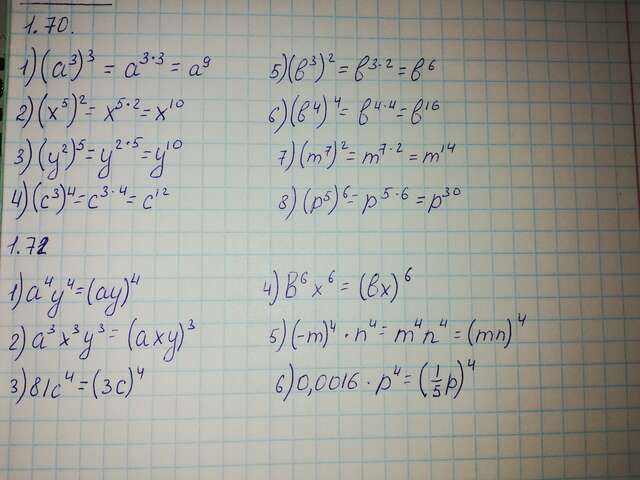 1.70.
1) (a³)³ = a³˙³ = a⁹
2) (x⁵)² = x⁵˙² = x¹⁰
3) (y²)⁵ = y²˙⁵ = y¹⁰
4) (c³)⁴ = c³˙⁴ = c¹²
5) (в³)² = в³˙² = в⁶
6) (в⁴)⁴ = в⁴˙⁴ = в¹⁶
7) (m⁷)² = m⁷˙² = m¹⁴
8) (p⁵)⁶ = p⁵˙⁶ = p³⁰
1.72
1) a⁴y⁴ = (ay)⁴
2) a³x³y³ = (axy)³
3) 81c⁴ = (3c)⁴
4) в⁶x⁶ = (вx)⁶
5) (-m)⁴ · n⁴ = m⁴n⁴ = (mn)⁴
6) 0,0016 · p⁴ = (1/5 p)⁴